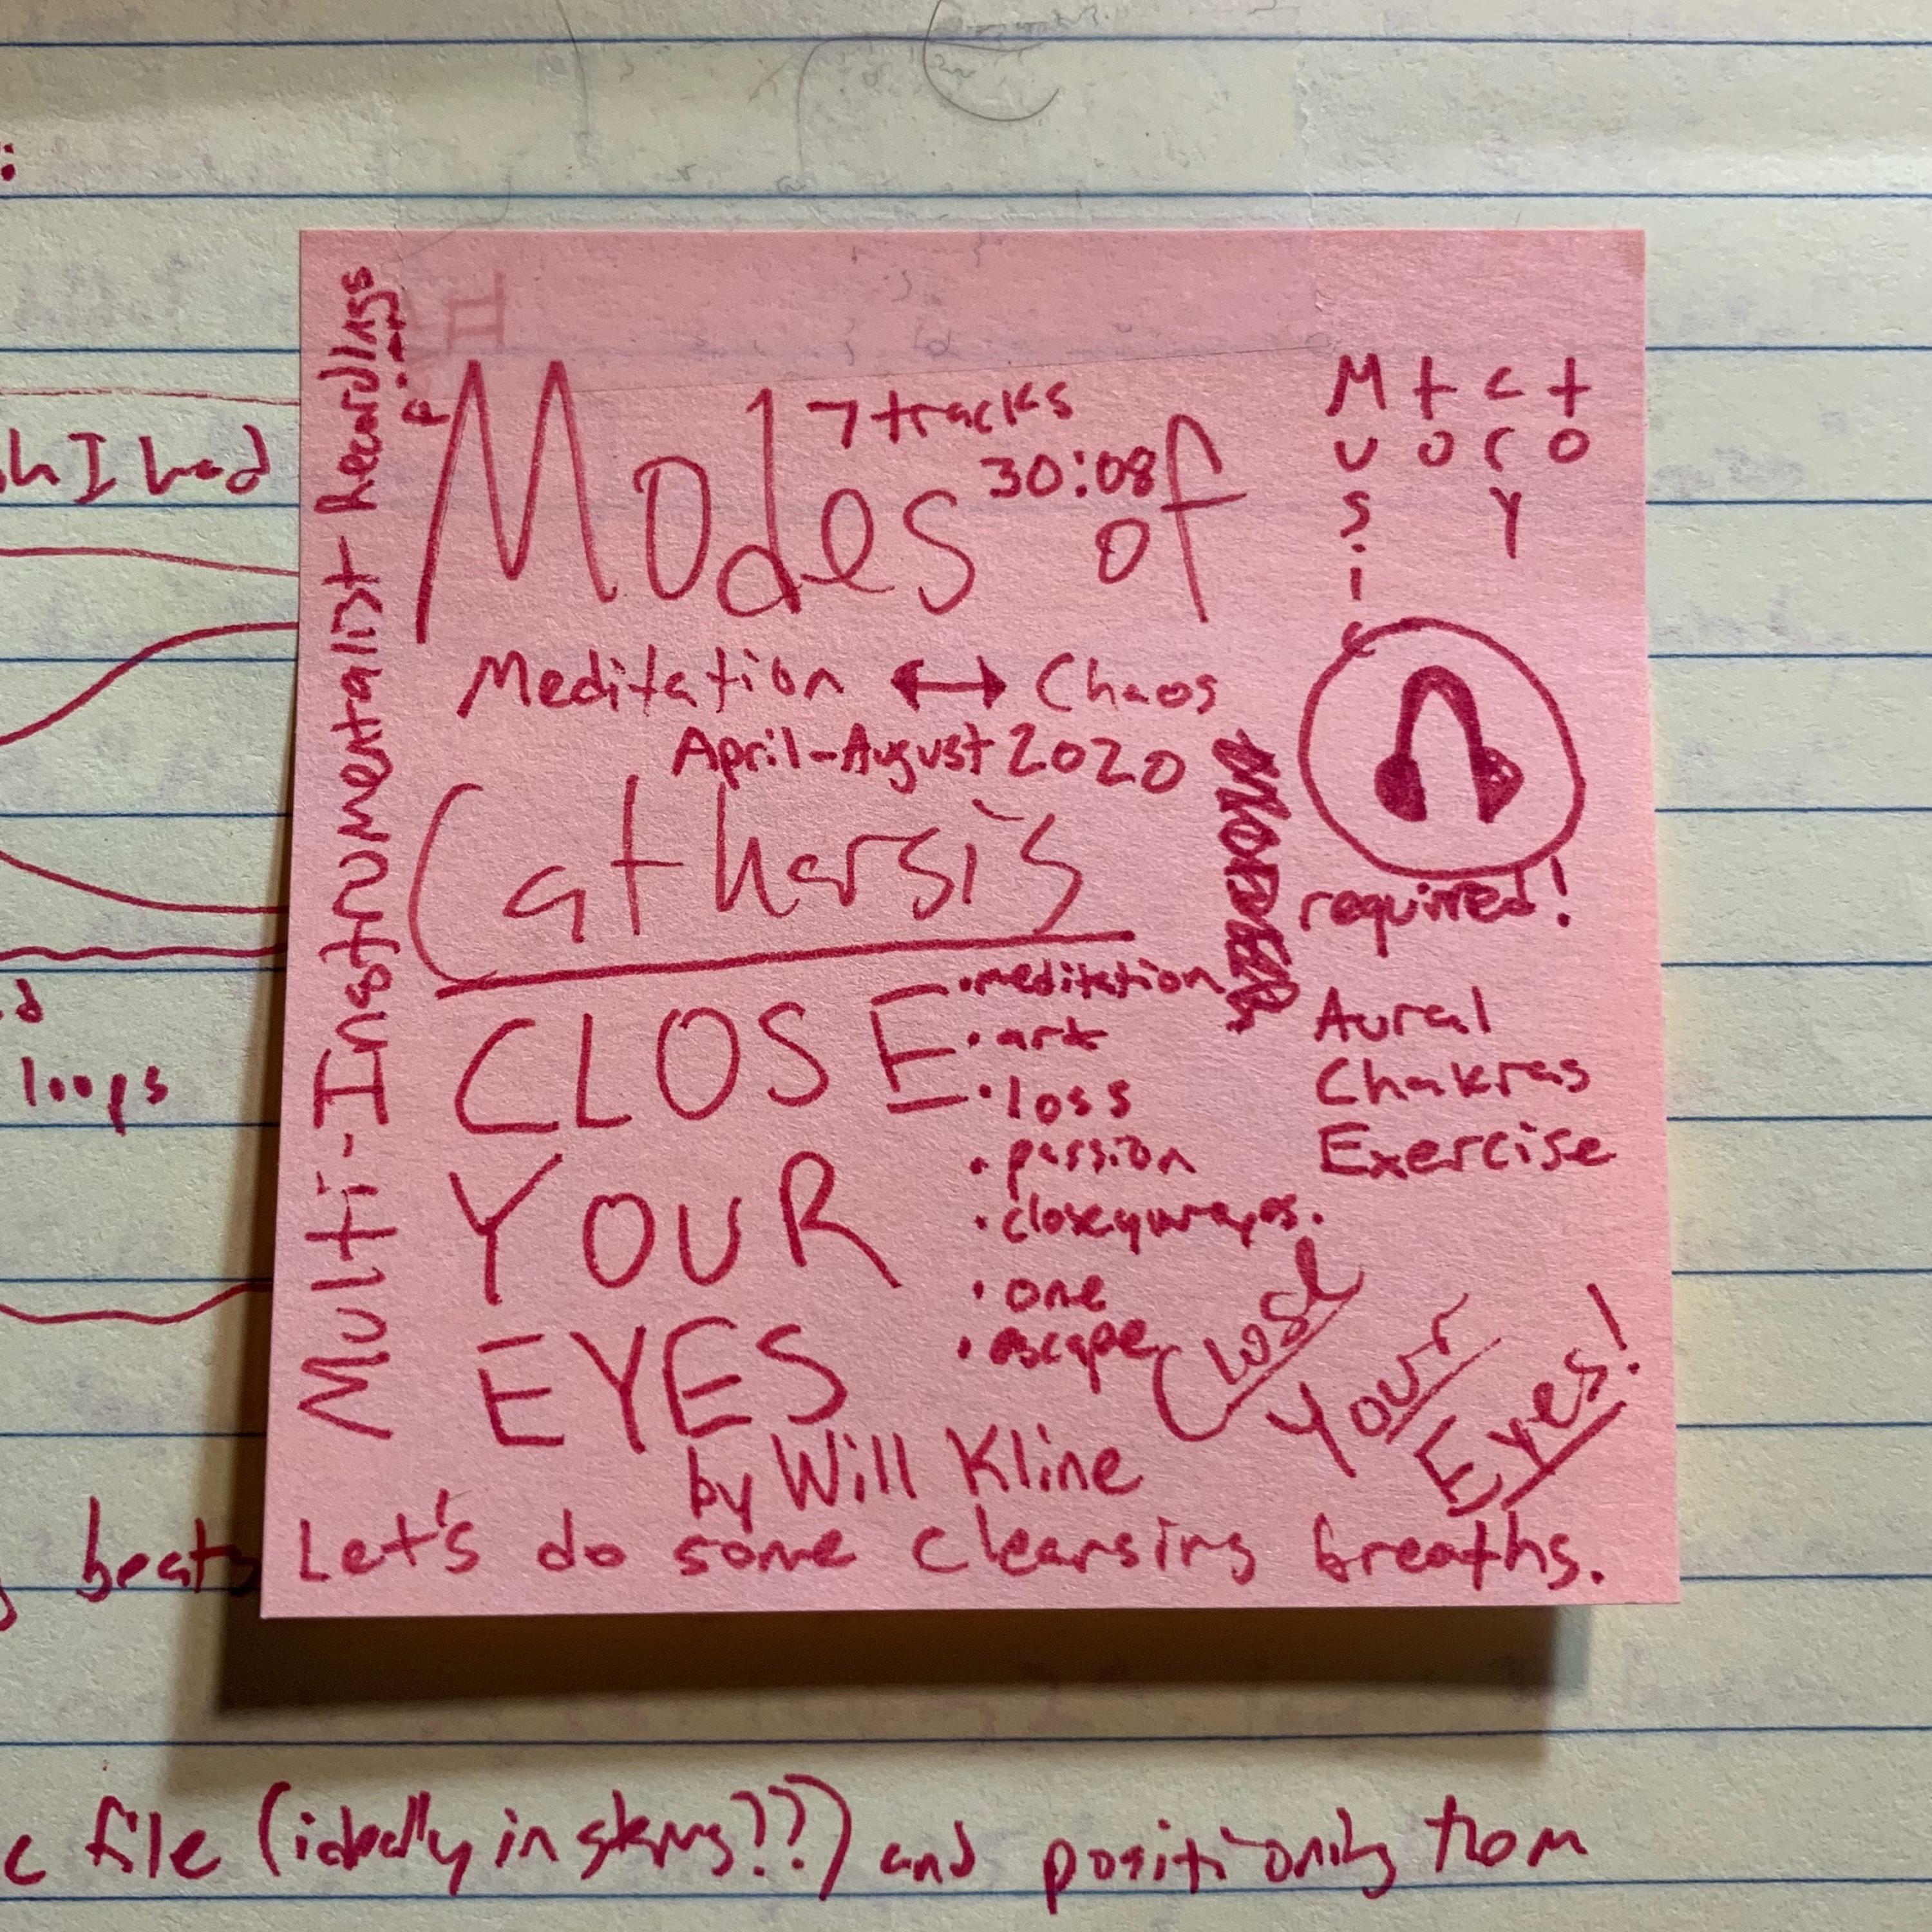 :
h I had
d
loops
beats
Multi-Instrumentalist Recordings
Modes of
7 tracks
30:08
Meditation ↔ Chaos
April-August 2020
Catharsis
CLOSE
YOUR
EYES
• meditation
• art
• loss
• passion
• closeyoureyes.
• one
• escape
by Will Kline
Music to cry to
required!
Aural
Chakras
Exercise
Close
Your
Eyes!
Let's do some cleansing breaths.
c file (ideally in stems??) and positioning from